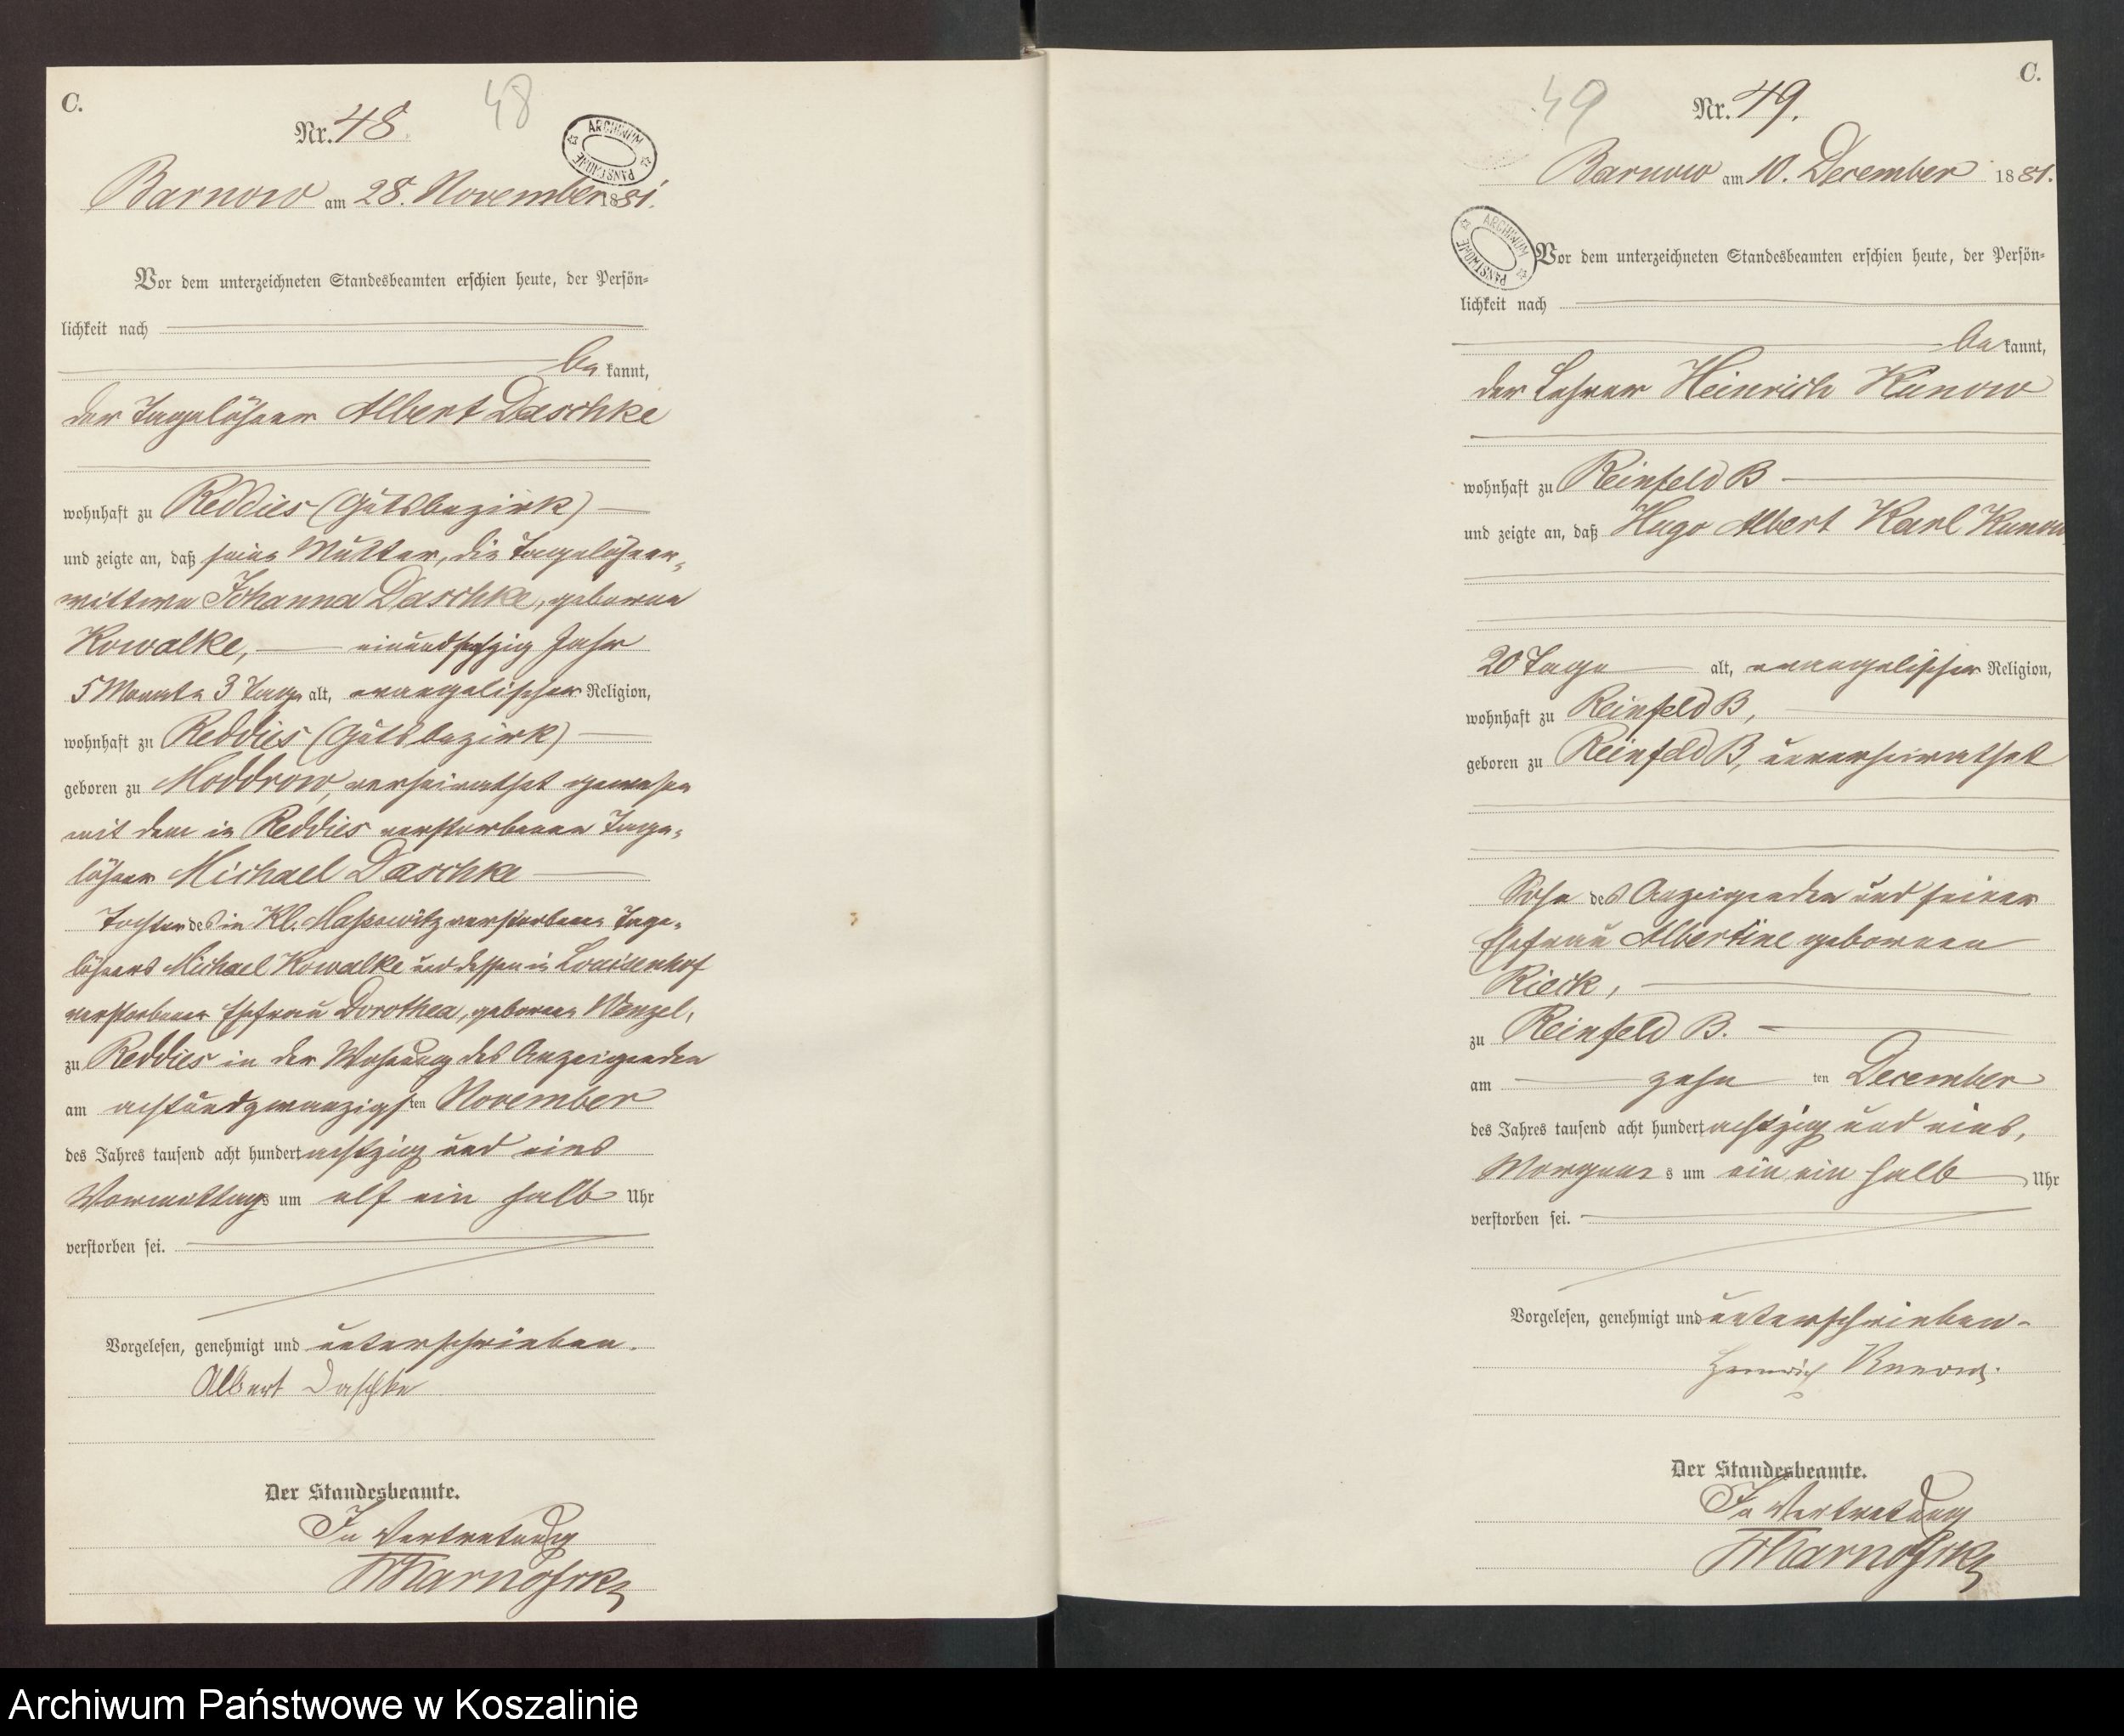 C.
Nr. 48.
48
ARCHIWUM PAŃSTWOWE
Barnow am 28. November 1881.
Vor dem unterzeichneten Standesbeamten erschien heute, der Persön-
lichkeit nach
be kannt,
der Tagelöhner Albert Daschke
wohnhaft zu Reddies (Gutsbezirk)
und zeigte an, daß seine Mutter, die Tagelöhner-
wittwe Johanna Daschke, geborene
Kowalke, einundsechzig Jahr
5 Monate 3 Tage alt, evangelischer Religion,
wohnhaft zu Reddies (Gutsbezirk)
geboren zu Moddrow, verheirathet gewesen
mit dem in Reddies verstorbenen Tage-
löhner Michael Daschke
Tochter des in Kl. Massowitz verstorbenen Tage-
löhners Michael Kowalke und dessen in Louisenhof
verstorbener Ehefrau Dorothea, geborene Wenzel,
zu Reddies in der Wohnung des Anzeigenden
am achtundzwanzigsten November
des Jahres tausend acht hundert achtzig und eins
Vormittags um elf ein halb Uhr
verstorben sei.
Vorgelesen, genehmigt und unterschrieben.
Albert Daschke
Der Standesbeamte.
In Vertretung
C.
49
Nr. 49.
Barnow am 10. December 1881.
ARCHIWUM PAŃSTWOWE
Vor dem unterzeichneten Standesbeamten erschien heute, der Persön-
lichkeit nach
be kannt,
der Lehrer Heinrich Kunow
wohnhaft zu Reinfeld B
und zeigte an, daß Hugo Albert Karl Kunow
20 Tage alt, evangelischer Religion,
wohnhaft zu Reinfeld B,
geboren zu Reinfeld B, unverheirathet
Sohn des Anzeigenden und seiner
Ehefrau Albertine geborenen
Rieck,
zu Reinfeld B.
am zehn ten December
des Jahres tausend acht hundert achtzig und eins,
Morgens um ein ein halb Uhr
verstorben sei.
Vorgelesen, genehmigt und unterschrieben.
Heinrich Kunow.
Der Standesbeamte.
In Vertretung
Archiwum Państwowe w Koszalinie